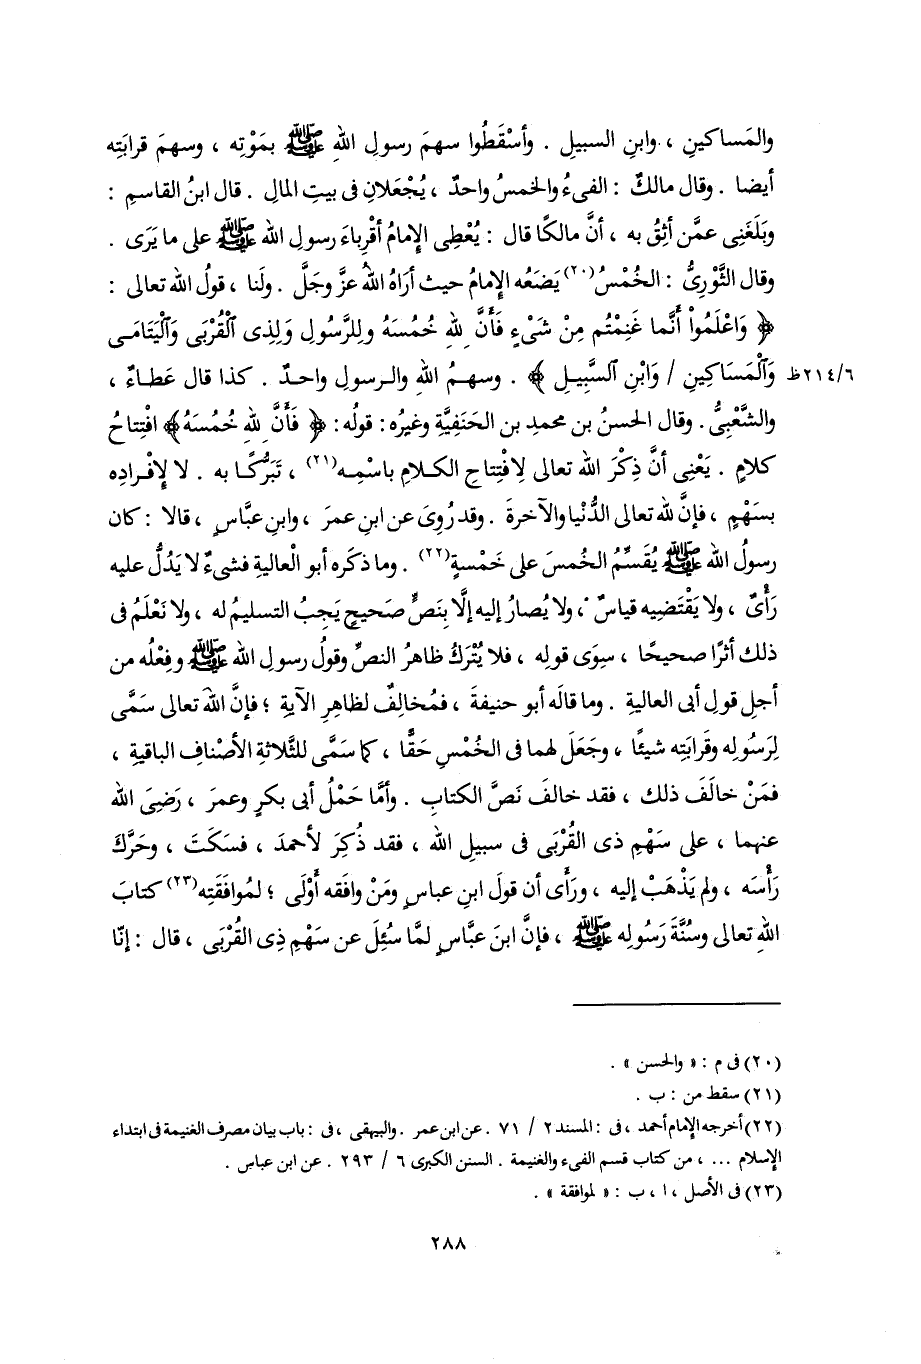 والمَساكينِ ، وابنِ السبيلِ . وأسْقَطُوا سهمَ رسولِ اللهِ ﷺ بمَوْتِه ، وسهمَ قرابَتِه
أيضا . وقال مالكٌ : الفىءُ والخمسُ واحدٌ ، يُجْعَلانِ فى بيتِ المالِ . قال ابنُ القاسمِ :
وبَلَغَنِى عمَّن أثِقُ به ، أنَّ مالكًا قال : يُعْطِى الإمامُ أقْرِباءَ رسولِ الله ﷺ على ما يَرَى .
وقال الثَّوْرِىُّ : الخُمْسُ(٢٠) يَضَعُه الإمامُ حيث أرَاهُ اللهُ عزَّ وجَلَّ . ولَنا ، قولُ الله تعالى :
﴿ وَاعْلَمُواْ أَنَّما غَنِمْتُم مِنْ شَىْءٍ فَأَنَّ لِلهِ خُمُسَهُ ولِلرَّسُولِ وَلِذِى ٱلْقُرْبَى وَٱلْيَتَامَـى
وَٱلْمَسَاكِينِ / وَابْنِ ٱلسَّبِيـلِ ﴾ . وسهـمُ اللهِ والـرسولِ واحـدٌ . كذا قال عَطـاءٌ ،
٢١٤/٦ظ
والشَّعْبِىُّ . وقال الحسنُ بن محمدِ بن الحَنَفِيَّةِ وغيرُه : قولُه : ﴿ فَأَنَّ لِلهِ خُمُسَهُ ﴾ افْتِتاحُ
كلامٍ . يَعْنِى أنَّ ذِكْرَ الله تعالى لِافْتِتاحِ الكـلامِ باسْمِـه(٢١) ، تَبَرُّكًـا به . لا لِإفْـرادِه
بسَهْمٍ ، فإنَّ لله تعالى الدُّنْيا والآخرةَ . وقد رُوِىَ عن ابنِ عمرَ ، وابنِ عبَّاسٍ ، قالا : كان
رسولُ الله ﷺ يُقَسِّمُ الخُمسَ على خَمْسةٍ(٢٢) . وما ذكَره أبو الْعاليةِ فشىءٌ لا يَدُلُّ عليه
رَأْىٌ ، ولا يَقْتَضِيه قياسٌ ، ولا يُصارُ إليه إلَّا بِنَصٍّ صَحيحٍ يَجِبُ التسليمُ له ، ولا نَعْلَمُ فى
ذلك أثرًا صحيحًا ، سِوَى قولِه ، فلا يُتْرَكُ ظاهرُ النصِّ وقولُ رسولِ الله ﷺ وفِعْلُه من
أجلِ قولِ أبى العاليةِ . وما قالَه أبو حنيفةَ ، فمُخالِفٌ لظاهِرِ الآيةِ ؛ فإنَّ اللهَ تعالى سَمَّى
لِرَسُولِه وقَرابَتِه شيئًا ، وجَعَلَ لهما فى الخُمْسِ حَقًّا ، كما سَمَّى للثَّلاثةِ الأصْنافِ الباقيةِ ،
فمَنْ خالَفَ ذلك ، فقد خالفَ نَصَّ الكتابِ . وأمَّا حَمْلُ أبى بكرٍ وعمرَ ، رَضِىَ الله
عنهما ، على سَهْمِ ذى القُرْبَى فى سبيلِ الله ، فقد ذُكِرَ لأحمدَ ، فسَكَتَ ، وحَرَّكَ
رَأْسَه ، ولم يَذْهَبْ إليه ، ورَأَى أن قولَ ابنِ عباسٍ ومَنْ وافَقه أوْلَى ؛ لمُوافَقَتِه(٢٣) كتابَ
اللهِ تعالى وسُنَّةَ رَسُولِه ﷺ ، فإنَّ ابنَ عبَّاسٍ لمَّا سُئِلَ عن سَهْمِ ذِى القُرْبَى ، قال : إنّا
(٢٠) فى م : « والحسن » .
(٢١) سقط من : ب .
(٢٢) أخرجه الإمام أحمد ، فى : المسند ٢ / ٧١ . عن ابن عمر . والبيهقى ، فى : باب بيان مصرف الغنيمة فى ابتداء
الإسلام ... ، من كتاب قسم الفىء والغنيمة . السنن الكبرى ٦ / ٢٩٣ . عن ابن عباس .
(٢٣) فى الأصل ، ا ، ب : « لموافقة » .
٢٨٨